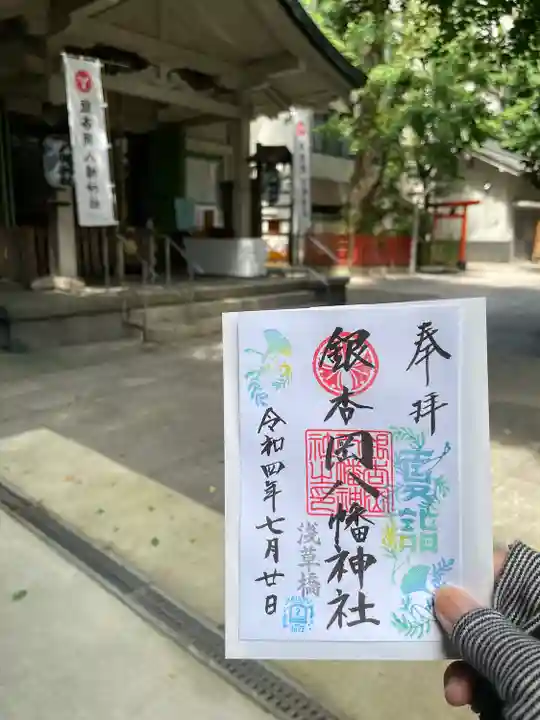 奉拝
夏詣
銀杏岡八幡神社
浅草橋
令和四年七月廿日
銀杏岡八幡神社